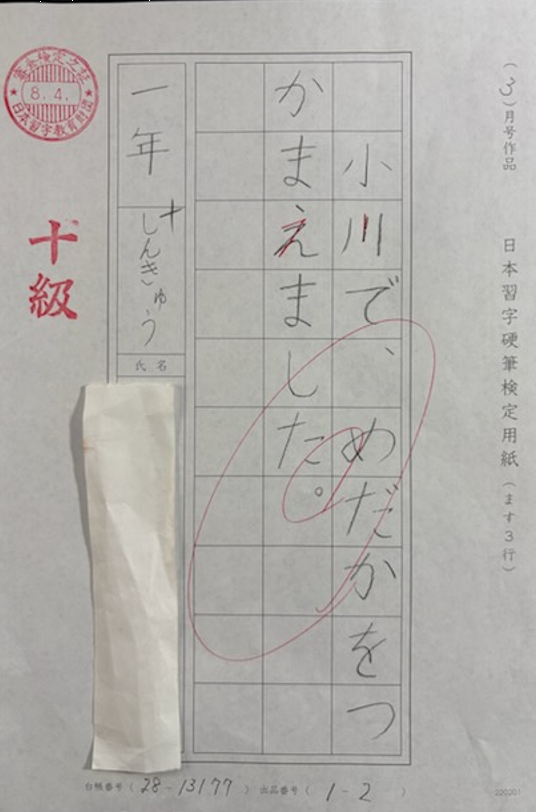 (3)月号作品 日本習字硬筆検定用紙(ます3行)
小川で、めだかをつ
かまえました。
一年
十しんきゅう
氏名
8.4.
日本習字教育財団
十級
台帳番号(28-13177) 出品番号(1-2)
220201